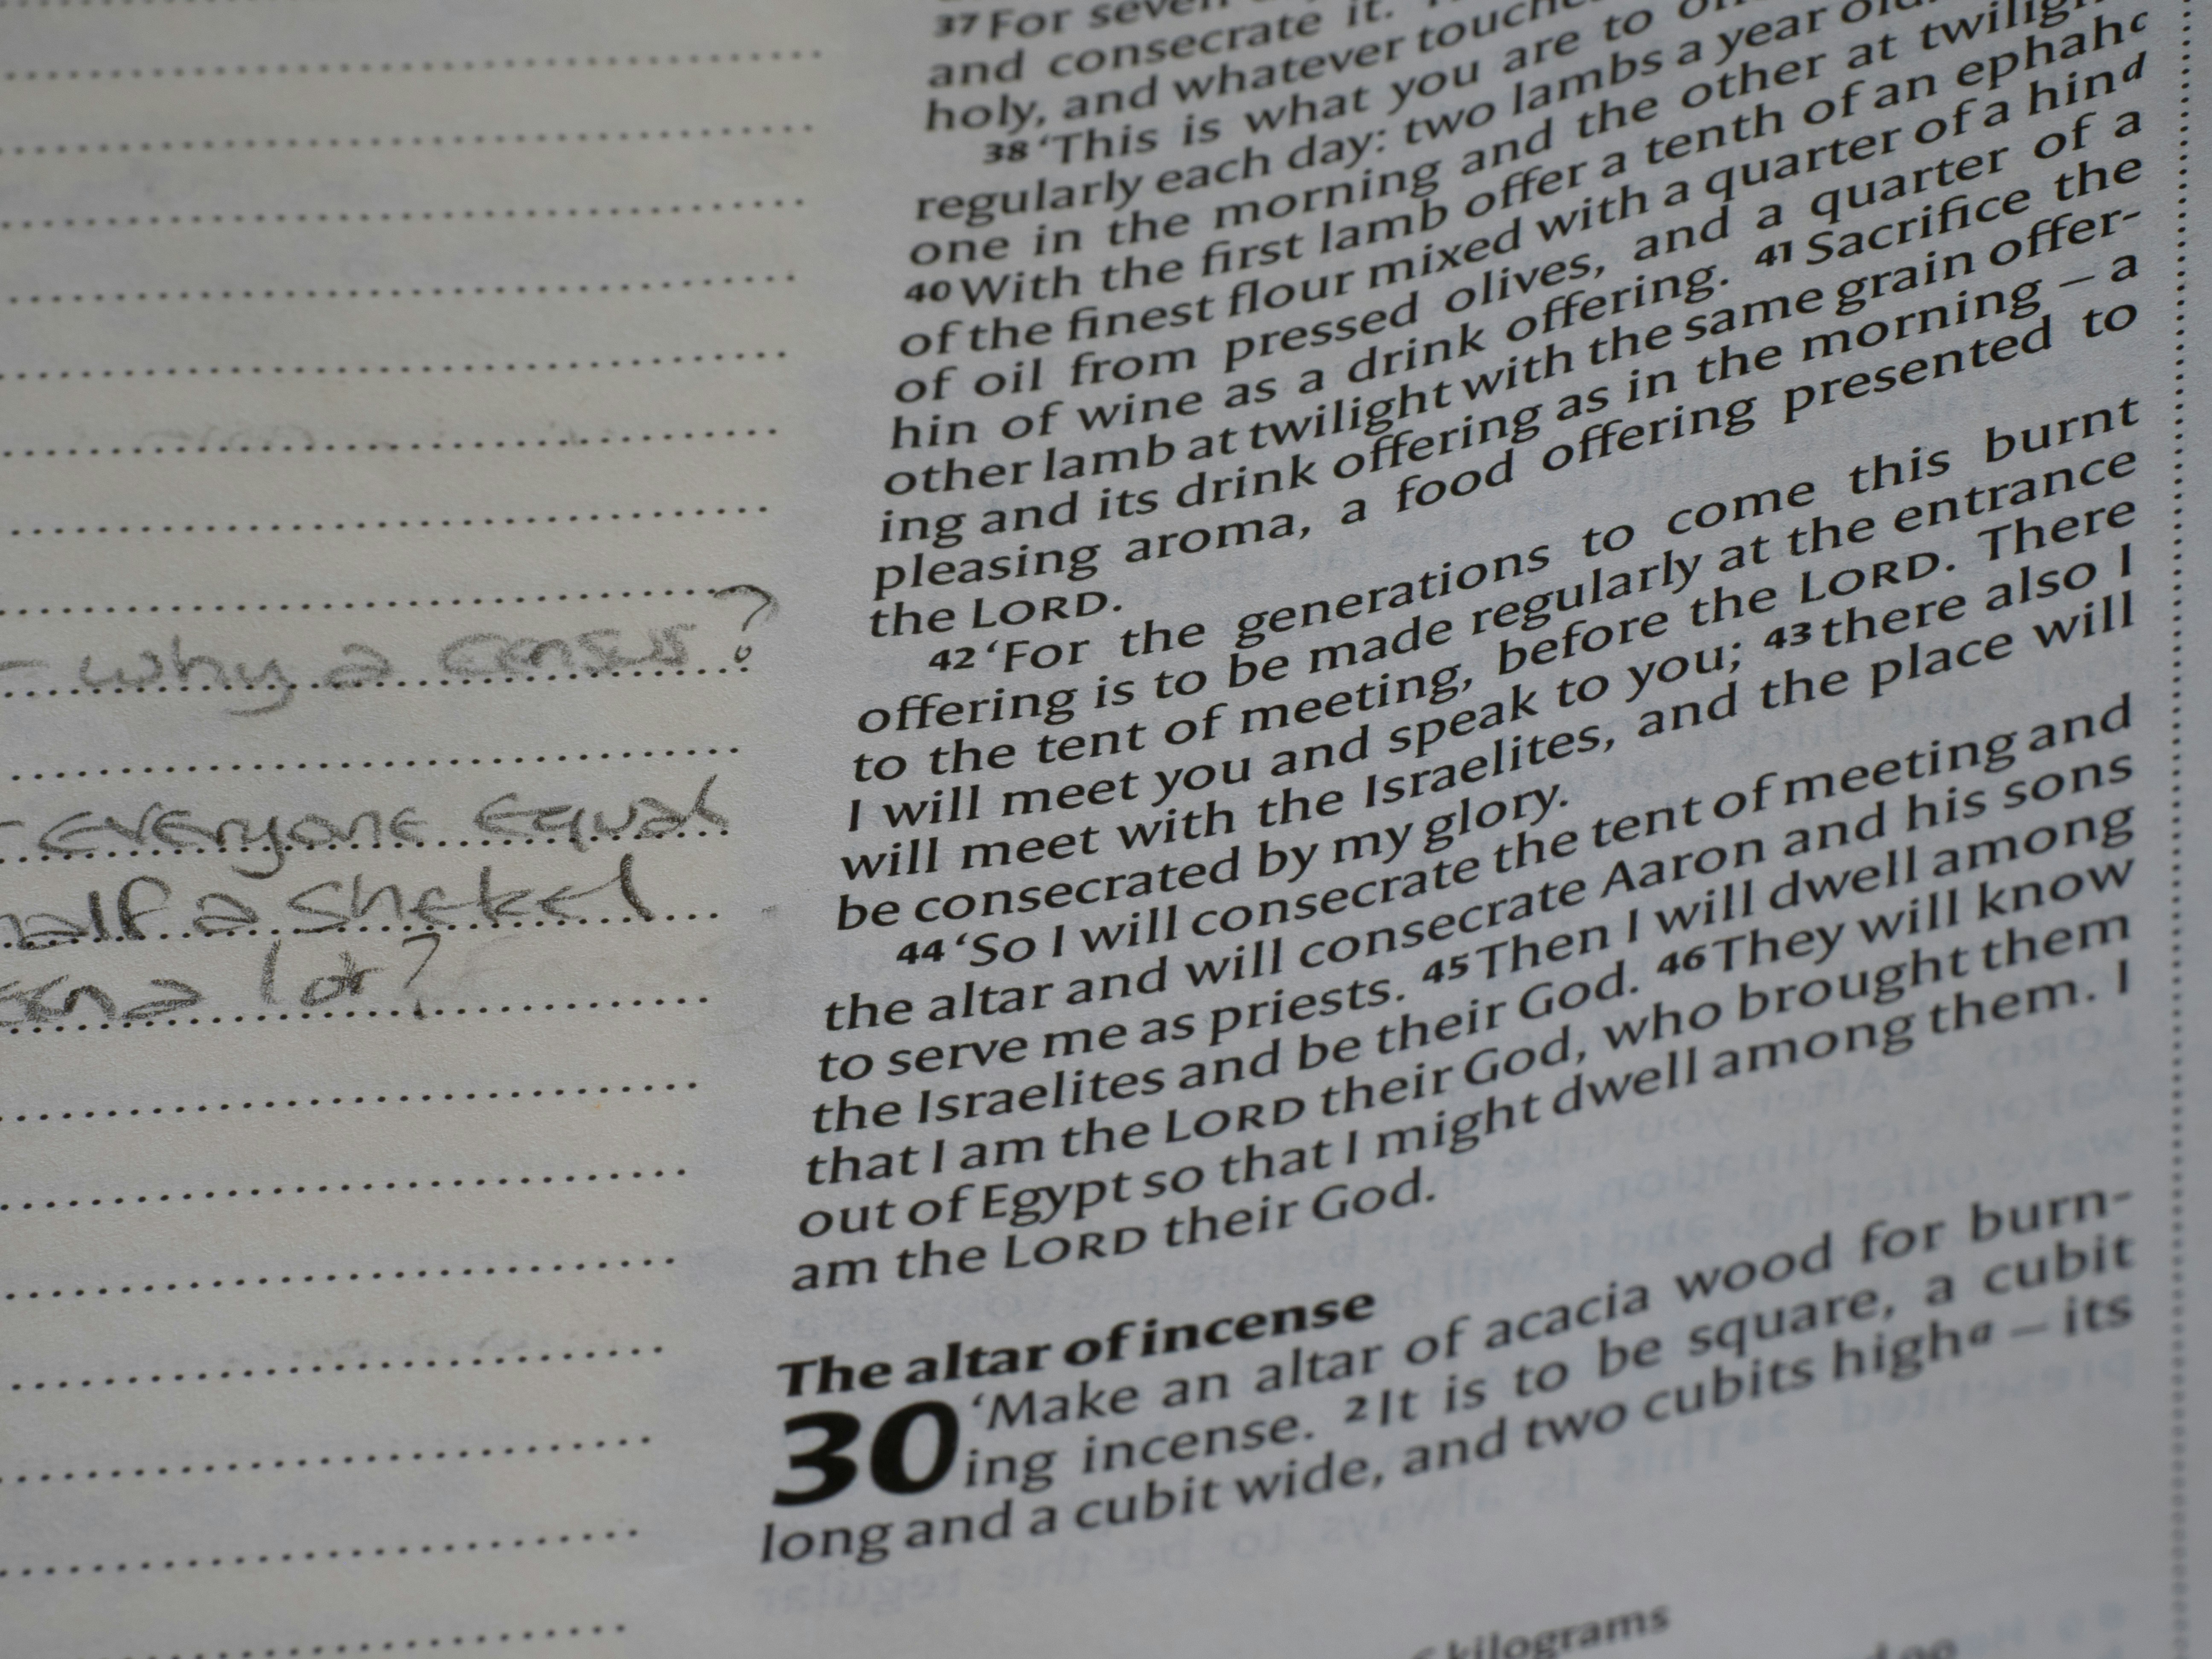 - why a census?
- everyone equal
half a shekel
a lot?
37 For seven
and consecrate it.
holy, and whatever
38 ‘This is what you are to
regularly each day: two lambs a year
one in the morning and the other at
40 With the first lamb offer a tenth of an ephahc
of the finest flour mixed with a quarter of a hind
of oil from pressed olives, and a quarter of a
hin of wine as a drink offering. 41 Sacrifice the
other lamb at twilight with the same grain offer-
ing and its drink offering as in the morning – a
pleasing aroma, a food offering presented to
the LORD.
42 ‘For the generations to come this burnt
offering is to be made regularly at the entrance
to the tent of meeting, before the LORD. There
I will meet you and speak to you; 43 there also I
will meet with the Israelites, and the place will
be consecrated by my glory.
44 ‘So I will consecrate the tent of meeting and
the altar and will consecrate Aaron and his sons
to serve me as priests. 45 Then I will dwell among
the Israelites and be their God. 46 They will know
that I am the LORD their God, who brought them
out of Egypt so that I might dwell among them. I
am the LORD their God.
The altar of incense
30 ‘Make an altar of acacia wood for burn-
ing incense. 2 It is to be square, a cubit
long and a cubit wide, and two cubits higha – its
kilograms